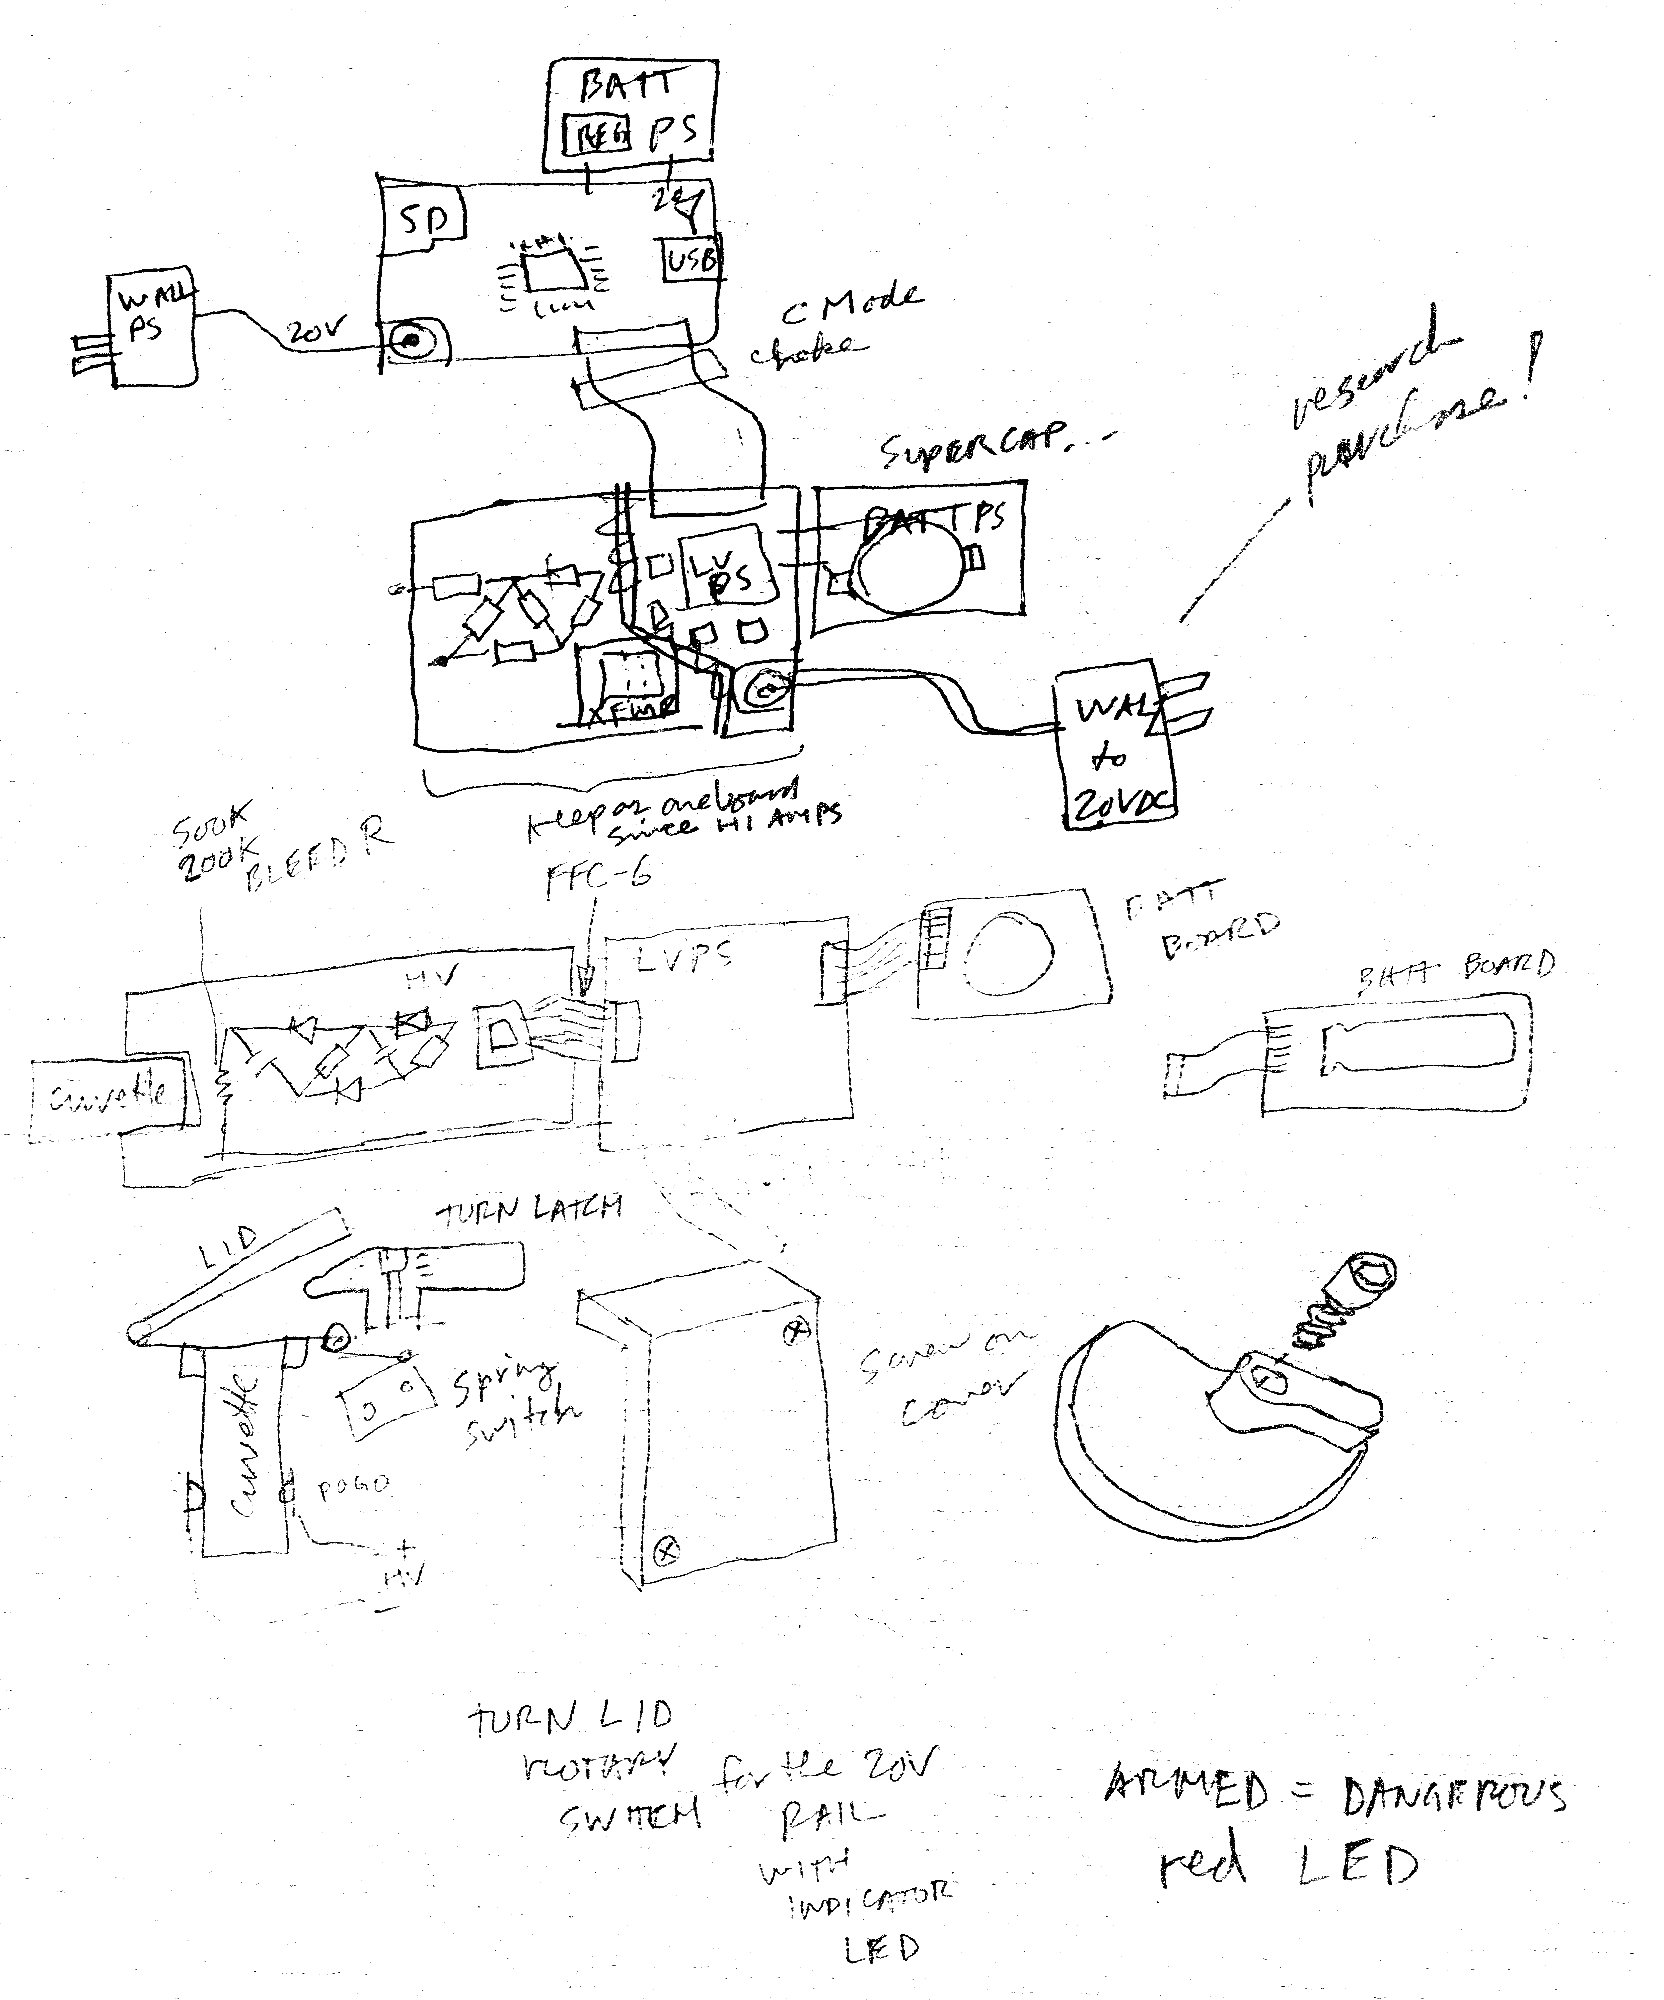 BATT
REG PS
SD
USB
WALL
PS
20V
C Mode
choke
research
purchase!
SUPERCAP...
BATT PS
LV
PS
XFMR
WALL
to
20VDC
Keep on one board
since HI AMPS
500K
200K
BLEED R
FFC-6
HV
LVPS
BATT
BOARD
BATT BOARD
cuvette
LID
TURN LATCH
Spring
switch
cuvette
POGO
+
HV
-
Screw on
cover
TURN LID
ROTARY
SWITCH
for the 20V
RAIL
WITH
INDICATOR
LED
ARMED = DANGEROUS
red LED